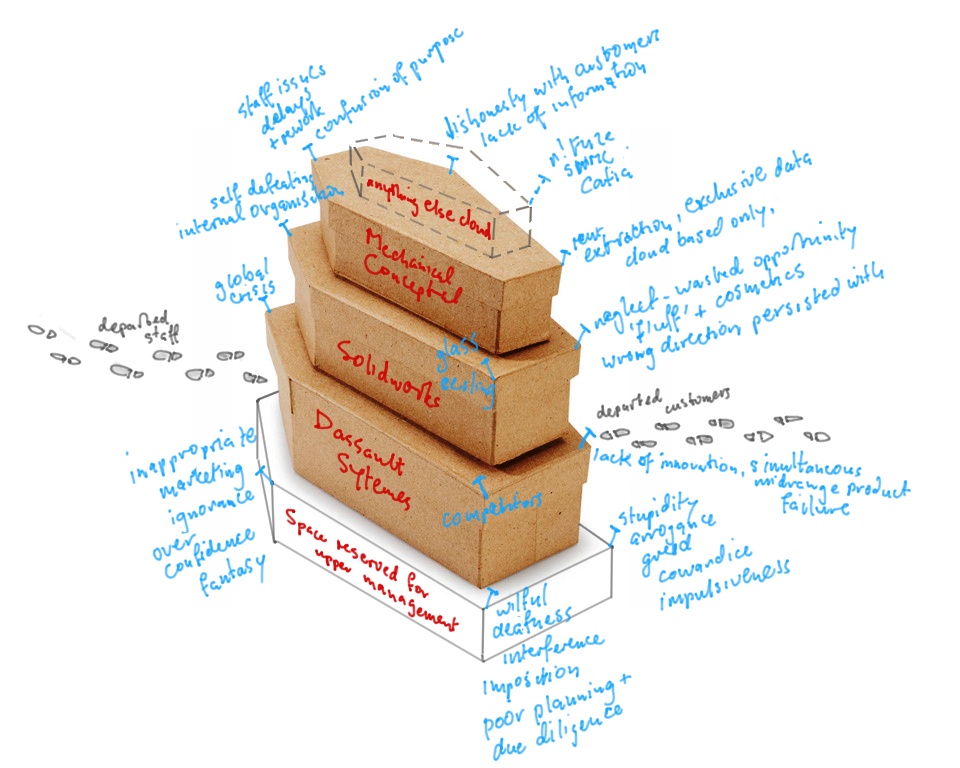 staff issues
delays
+ rework
confusion of purpose
dishonesty with customers
lack of information
n!Fuze
SWMC
Catia
self defeating
internal organisation
anything else cloud
rent
extraction, exclusive data
cloud based only,
Mechanical
Conceptual
global
crisis
neglect - wasted opportunity
'fluff' + cosmetics
wrong direction, persisted with
departed
staff
glass
ceiling
Solidworks
departed customers
Dassault
Sytemes
lack of innovation, simultaneous
midrange product
failure
inappropriate
marketing
ignorance
over
confidence
fantasy
competitors
stupidity
arrogance
greed
cowardice
impulsiveness
Space reserved for
upper management
wilful
deafness
interference
imposition
poor planning +
due diligence